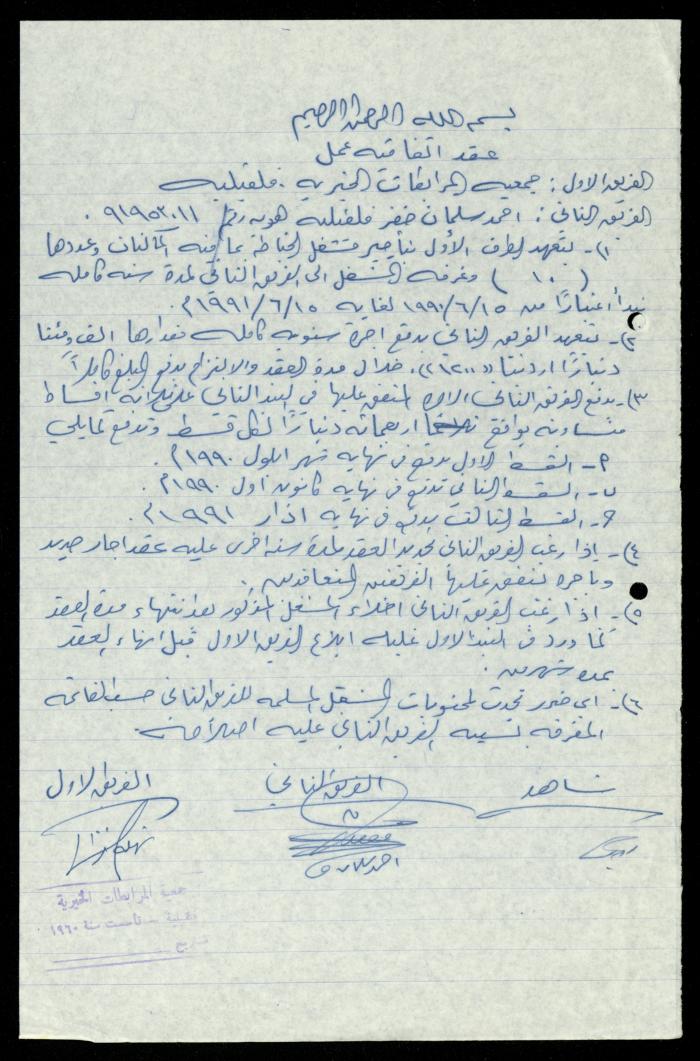 بسم الله الرحمن الرحيم
عقد اتفاقية عمل
الفريق الاول : جمعية المرابطات الخيرية . قلقيلية
الفريق الثاني : احمد سلمان خضر قلقيلية هوية رقم ٩١٩٥٢٠١١ .
١)- يتعهد الطرف الأول بتأجير مشغل الخياطة بما فيه الماكنات وعددها
( ١٠ ) وغرفة المشغل الى الفريق الثاني لمدة سنة كاملة
تبدأ اعتبارًا من ١٩٩٠/٦/١٥ لغاية ١٩٩١/٦/١٥م.
٢)- يتعهد الفريق الثاني بدفع اجرة سنوية كاملة مقدارها الف ومئتا
دينارًا اردنيًا «١٢٠٠» . خلال مدة العقد والالتزام بدفع المبلغ كاملاً
٣)- يدفع الفريق الثاني الاجرة المتفق عليها في البند الثاني على ثلاثة اقساط
متساوية بواقع اربعمائة دينارًا لكل قسط وتدفع كمايلي
٩- القسط الاول يدفع في نهاية شهر ايلول ١٩٩٠م.
ب- القسط الثاني تدفع في نهاية كانون اول ١٩٩٠م.
ج- القسط الثالث يدفع في نهاية اذار ١٩٩١م.
٤)- إذا رغب الفريق الثاني تجديد العقد لمدة سنة اخرى عليه عقد ايجار جديد
وبأجرة يتفق عليها الفريقين المتعاقدين .
٥)- اذا رغب الفريق الثاني اخلاء المشغل المذكور بعد انتهاء مدة العقد
كما ورد في البند الاول عليه ابلاغ الفريق الاول قبل انهاء العقد
بمدة شهرين .
٦)- اي ضرر تحدث لمحتويات المشغل المسلمة للفريق الثاني حسب القائمة
المرفقة بسببه الفريق الثاني عليه اصلاحه.
شاهد الفريق الثاني الفريق الاول
جمعية المرابطات الخيرية
قلقيلية - تأسست سنة ١٩٦٠